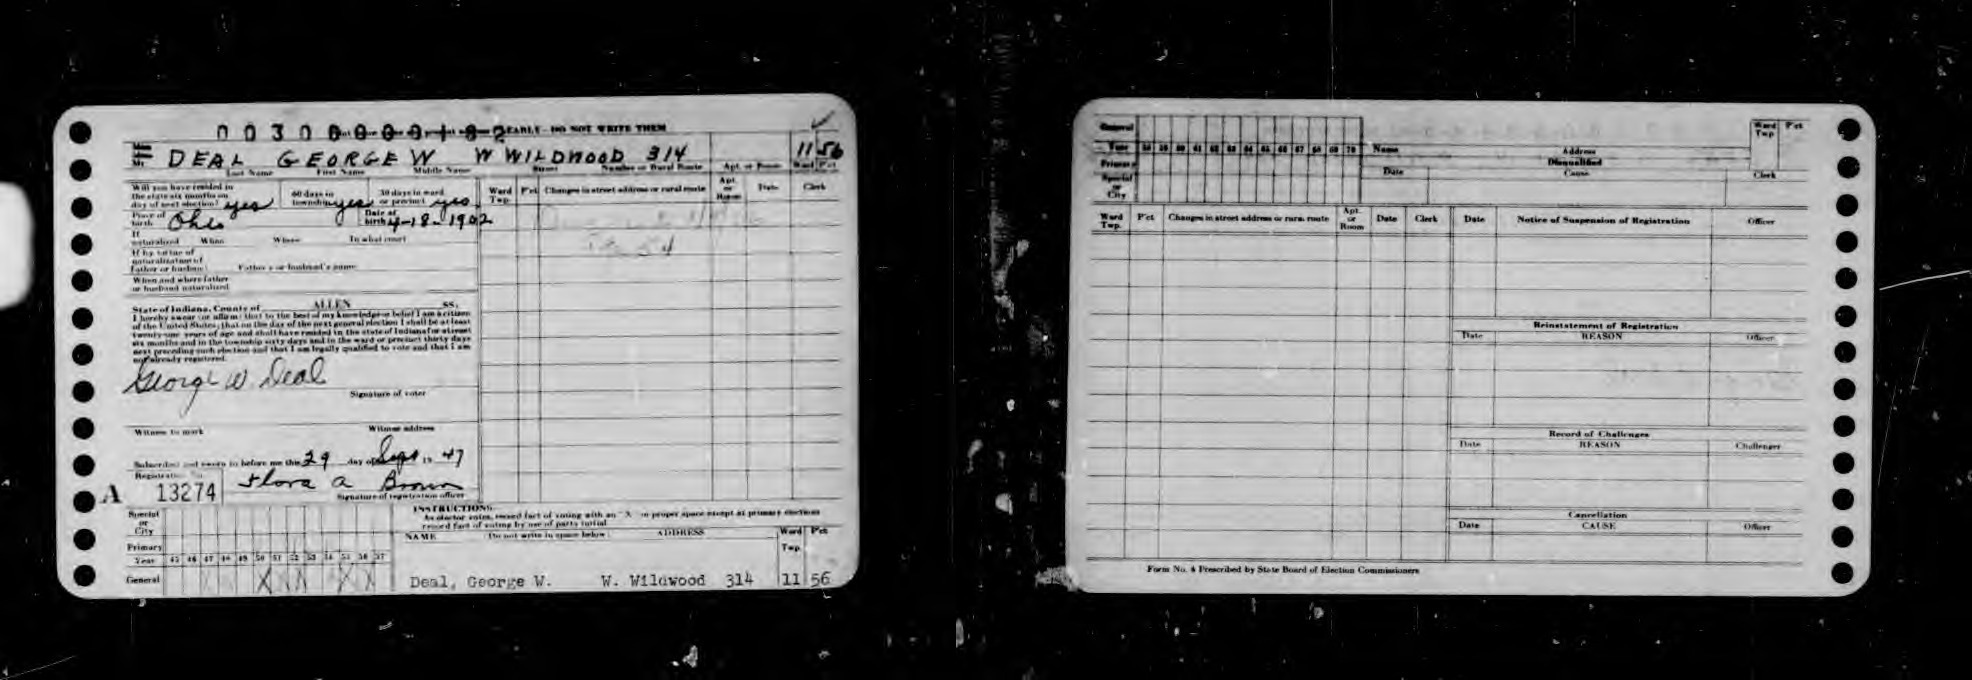 0030000182
EARLY - DO NOT WRITE THEM
DEAL GEORGE W W WILDWOOD 314 11 56
Last Name First Name Middle Name Street Number or Rural Route Apt. or Room Ward Pct
Will you have resided in
the state six months on
day of next election? yes
60 days in
township yes
30 days in ward
or precinct yes
Place of
birth Ohio
Date of
birth 4-18-1902
If
naturalized When Where In what court
If by virtue of
naturalization of
Father or husband Father's or husband's name
When and where father
or husband naturalized
State of Indiana, County of ALLEN SS.
I hereby swear (or affirm) that to the best of my knowledge or belief I am a citizen
of the United States; that on the day of the next general election I shall be at least
twenty-one years of age and shall have resided in the state of Indiana for at least
six months and in the township sixty days and in the ward or precinct thirty days
next preceding such election and that I am legally qualified to vote and that I am
not already registered.
George W Deal
Signature of voter
Witness to mark Witness address
Subscribed and sworn to before me this 29 day of Sept 19 47
Registration No.
A 13274
Flora A Brown
Signature of registration officer
Ward
Twp.
Pct
Changes in street address or rural route
Apt.
or
Room
Date
Clerk
54
Special
or
City
Primary
Year 45 46 47 48 49 50 51 52 53 54 55 56 57
General X X X
INSTRUCTIONS
As elector votes, record fact of voting with an "X" in proper space except at primary elections
record fact of voting by use of party initial
NAME Do not write in space below ADDRESS Ward Pct
Twp.
Deal, George W. W. Wildwood 314 11 56
General
Year 58 59 60 61 62 63 64 65 66 67 68 69 70
Primary
Special
or
City
Name Address
Ward
Twp
Pct
Disqualified
Date Cause Clerk
Ward
Twp.
Pct
Changes in street address or rural route
Apt.
or
Room
Date
Clerk
Date Notice of Suspension of Registration Officer
Reinstatement of Registration
Date REASON Officer
Record of Challenges
Date REASON Challenger
Cancellation
Date CAUSE Officer
Form No. 4 Prescribed by State Board of Election Commissioners